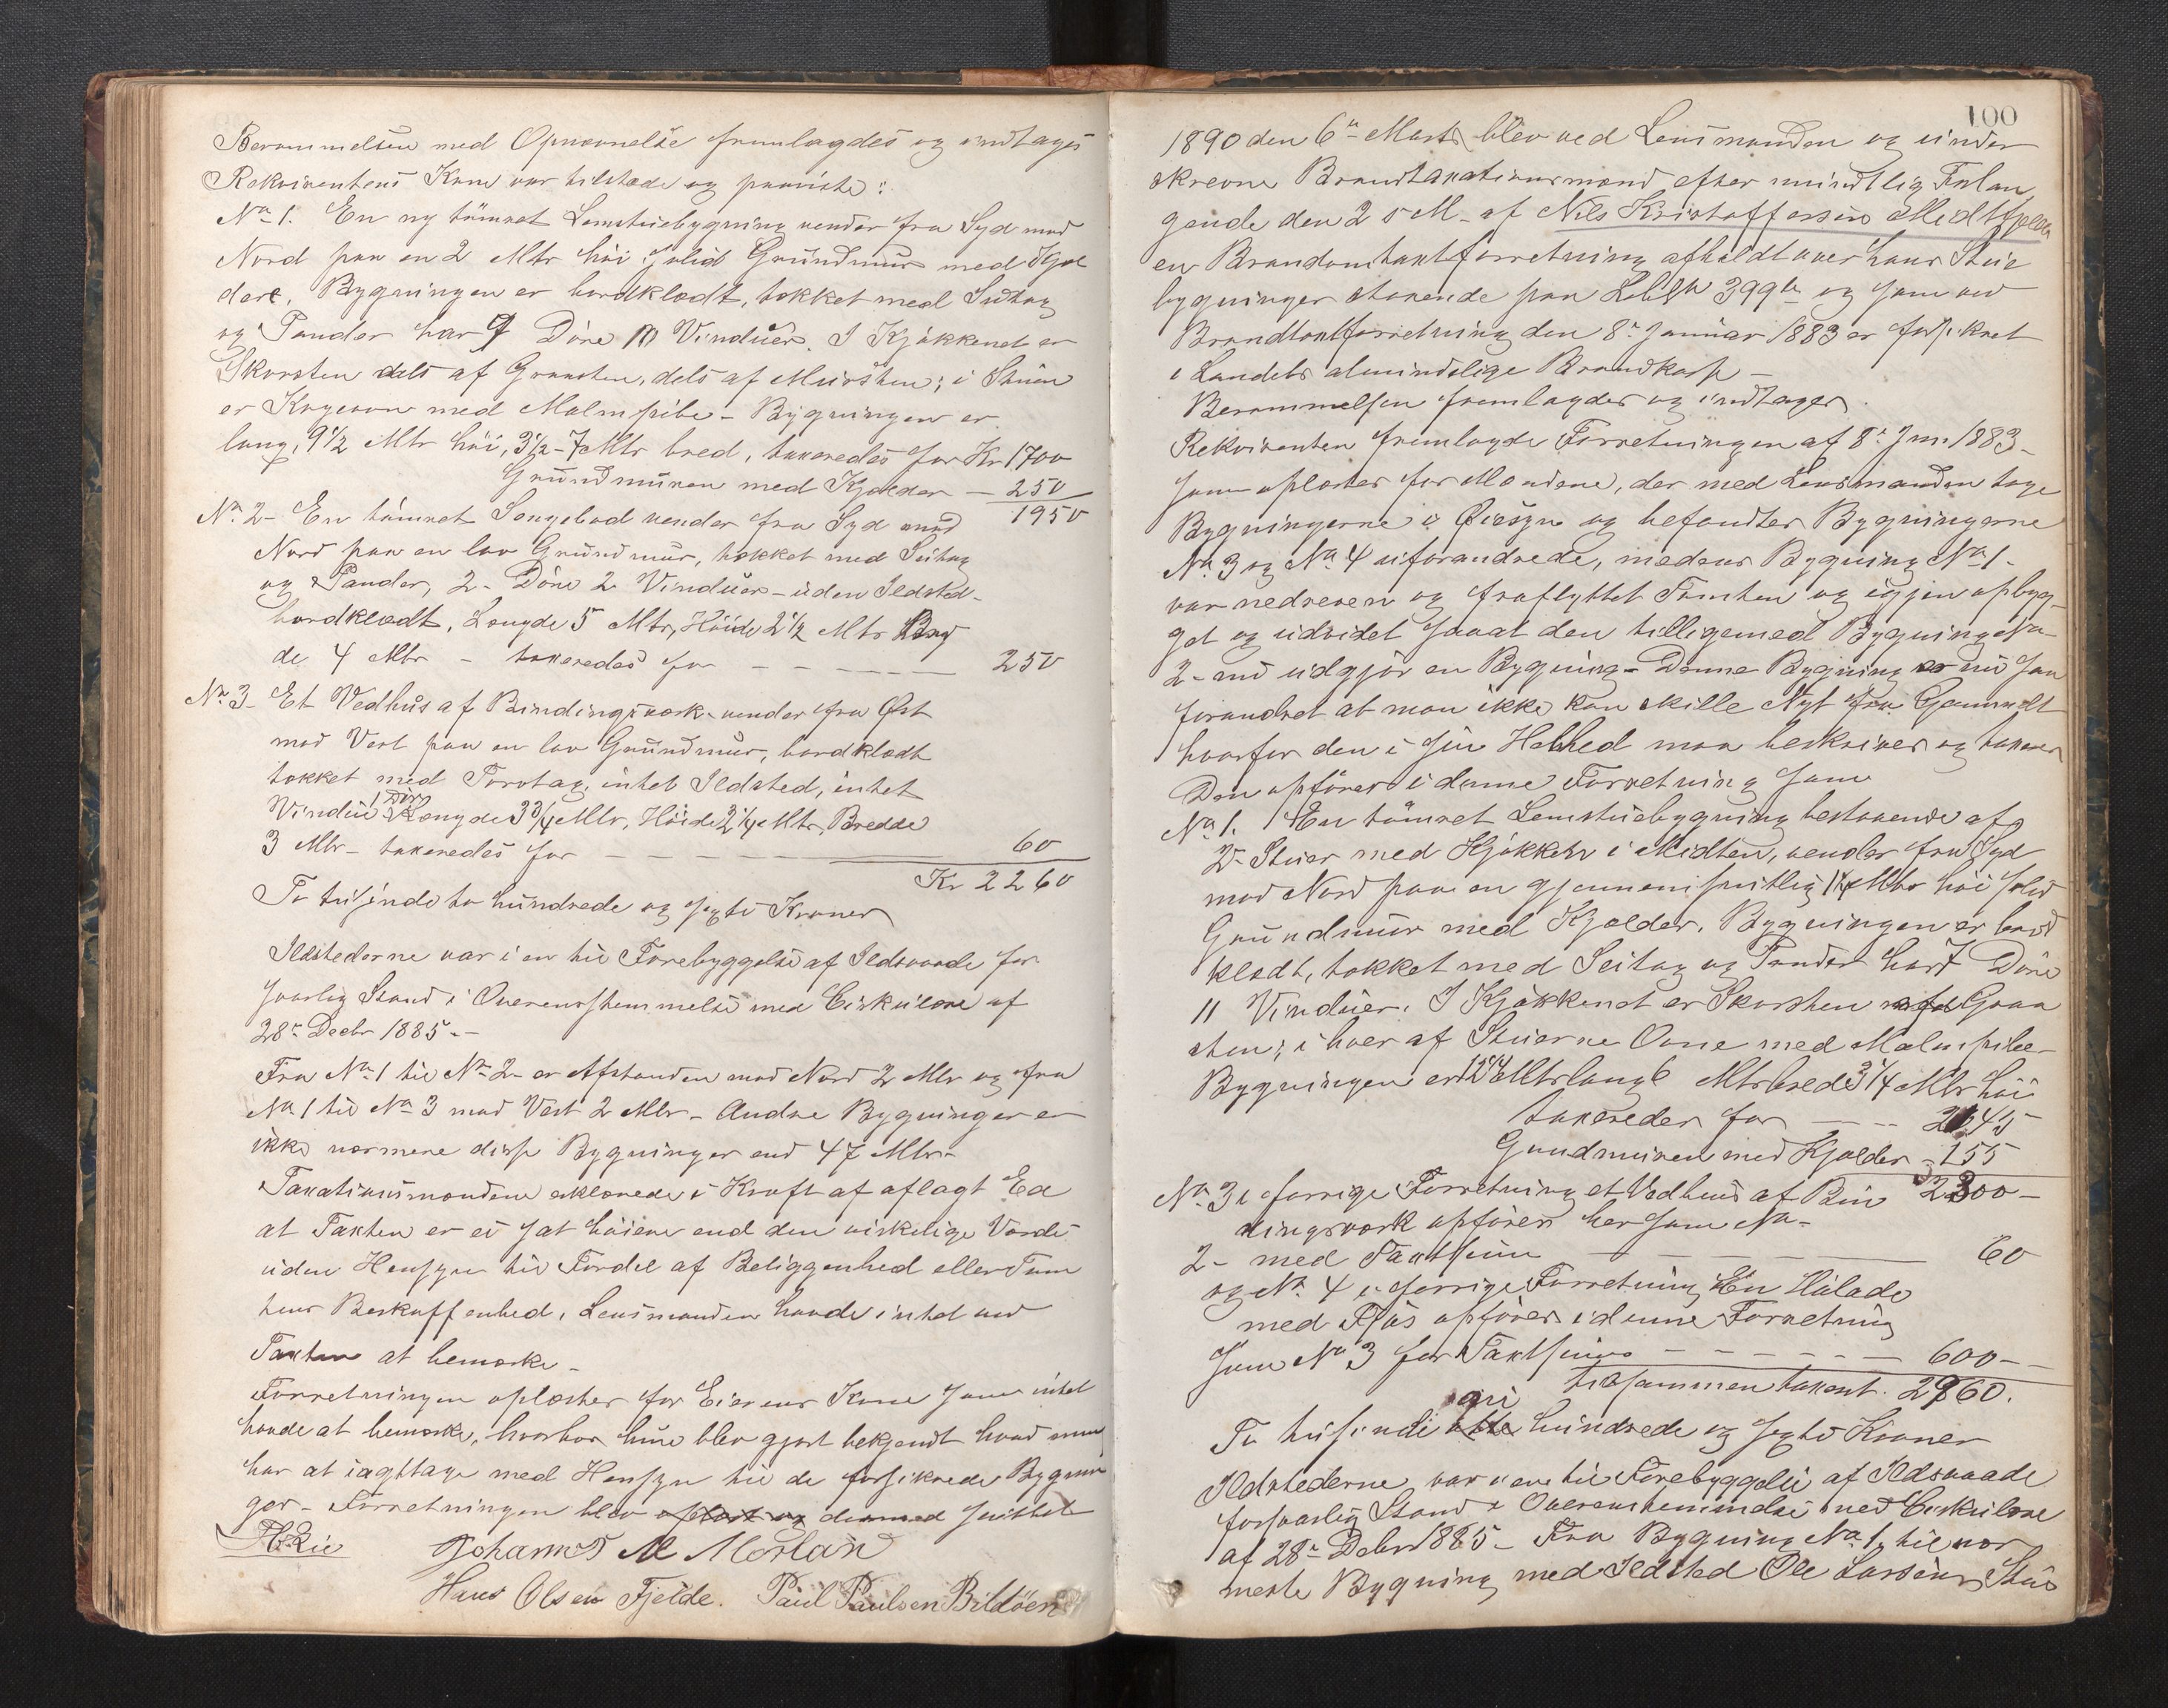 Berammelsen med Opnævnelse fremlagdes og indtages
Rekvirentens Kone var tilstede og paaviste:
No 1. En ny tømret Lemstuebygning vender fra Syd mod
Nord paa en 2 Mtr høi solid Grundmur med Kjel
dere. Bygningen er bordklædt, tækket med Sutag
og Pander har 7 Døre 10 Vinduer. I Kjøkkenet er
Skorsten dels af Graasten, dels af Mursten; i Stuen
er Kogeovn med Malmpibe - Bygningen er
lang, 9 1/2 Mtr høi, 3 1/2 - 7 Mtr bred, taxeredes for Kr 1700
Grundmuren med Kjælder — 250
1950
No 2 - En tømret Sengebod vender fra Syd mod
Nord paa en lav Grundmur, tækket med Sutag
og Pander, 2 - Døre 2 Vinduer - uden Ildsted -
bordklædt, Længde 5 Mtr, Høide 2 1/2 Mtr Bred
de 4 Mtr - taxeredes for — — — — 250
No 3 - Et Vedhus af Bindingsværk vender fra Øst
mod Vest paa en lav Grundmur, bordklædt
tækket med Torvtag, intet Ildsted, intet
Vindue 1 Dør Længde 3 3/4 Mtr, Høide 2 1/4 Mtr, Bredde
3 Mtr - taxeredes for — — — — 60
Kr 2260
To tusinde to hundrede og sexti Kroner
Ildstederne var i en til Forebyggelse af Ildsvaade for
svarlig Stand i Overensstemmelse med Cirkulære af
28de Decbr 1885 -
Fra No 1 til No 2 - er Afstanden mod Nord 2 Mtr og fra
No 1 til No 3 mod Vest 2 Mtr - Andre Bygninger er
ikke nærmere disse Bygninger end 47 Mtr -
Taxationsmændene erklærede i Kraft af aflagt Ed
at Taxten er ei sat høiere end den virkelige Værdi
uden Hensyn til Fordel af Beliggenhed eller Tom
tens Beskaffenhed, Lensmanden havde intet ved
Taxten at bemærke -
Forretningen oplæstes for Eierens Kone som intet
havde at bemærke, hvorhos hun blev gjort bekjendt hvad man
har at iagttage med Hensyn til de forsikrede Bygnin
ger - Forretningen blev oplæst og dermed sluttet
Johannes M Morland
Hans Olsen Fjelde. Paul Paulsen Bildøen
100
1890 den 6te Marts blev ved Lensmanden og under
skrevne Brandtaxationsmænd efter mundtlig Forlan
gende den 2 s M. af Nils Kristoffersen Midtfjeld
en Brandomtaxtforretning afholdt over hans Stue
bygninger staaende paa Lbsn 399 b og som ved
Brandtaxtforretning den 8de Januar 1883 er forsikret
i Landets almindelige Brandkasse —
Berammelsen fremlagdes og indtages.
Rekvirenten fremlagde Forretningen af 8de Jan. 1883 -
som oplæstes for Mændene, der med Lensmanden tage
Bygningerne i Øiesyn og befandtes Bygningerne
No 3 og No 4 uforandrede, medens Bygning No 1 -
var nedreven og fraflyttet Tomten og igjen opbyg
get og udvidet saaat den tilligemed Bygning No
2 - nu udgjør en Bygning - Denne Bygning er nu saa
forandret at man ikke kan skille Nyt fra Gammelt
hvorfor den i sin Helhed maa beskrives og taxeres
Den opføres i denne Forretning som
No 1. En tømret Lemstuebygning bestaaende af
2 - Stuer med Kjøkken i Midten, vender fra Syd
mod Nord paa en gjennemsnitlig 1 1/4 Mtr høi solid
Grundmur med Kjælder. Bygningen er bord
klædt, tækket med Seitag og Pander har 7 Døre
11 Vinduer. I Kjøkkenet er Skorsten af Graa
sten; i hver af Stuerne Ovne med Malmpibe -
Bygningen er 12 1/4 Mtr lang 6 Mtr bred 3 1/4 Mtr høi
taxeredes for — — 2145
Grundmuren med Kjælder - 155
2300 -
No 3 i forrige Forretning et Vedhus af Bin
dingsværk opføres her som No -
2 - med Taxtsum — — — 60
og No 4 i forrige Forretning En Hølade
med Fjøs opføres i denne Forretning
som No 3 for Taxtsum — — — — 600 -
tilsammen taxert. 2960.
To tusinde otte ni hundrede og sexti Kroner
Ildstederne var i en til Forebyggelse af Ildsvaade
forsvarlig Stand i Overensstemmelse med Cirkulære
af 28de Decbr 1885 - Fra Bygning No 1 til nær
meste Bygning med Ildsted Ole Larsens Stue